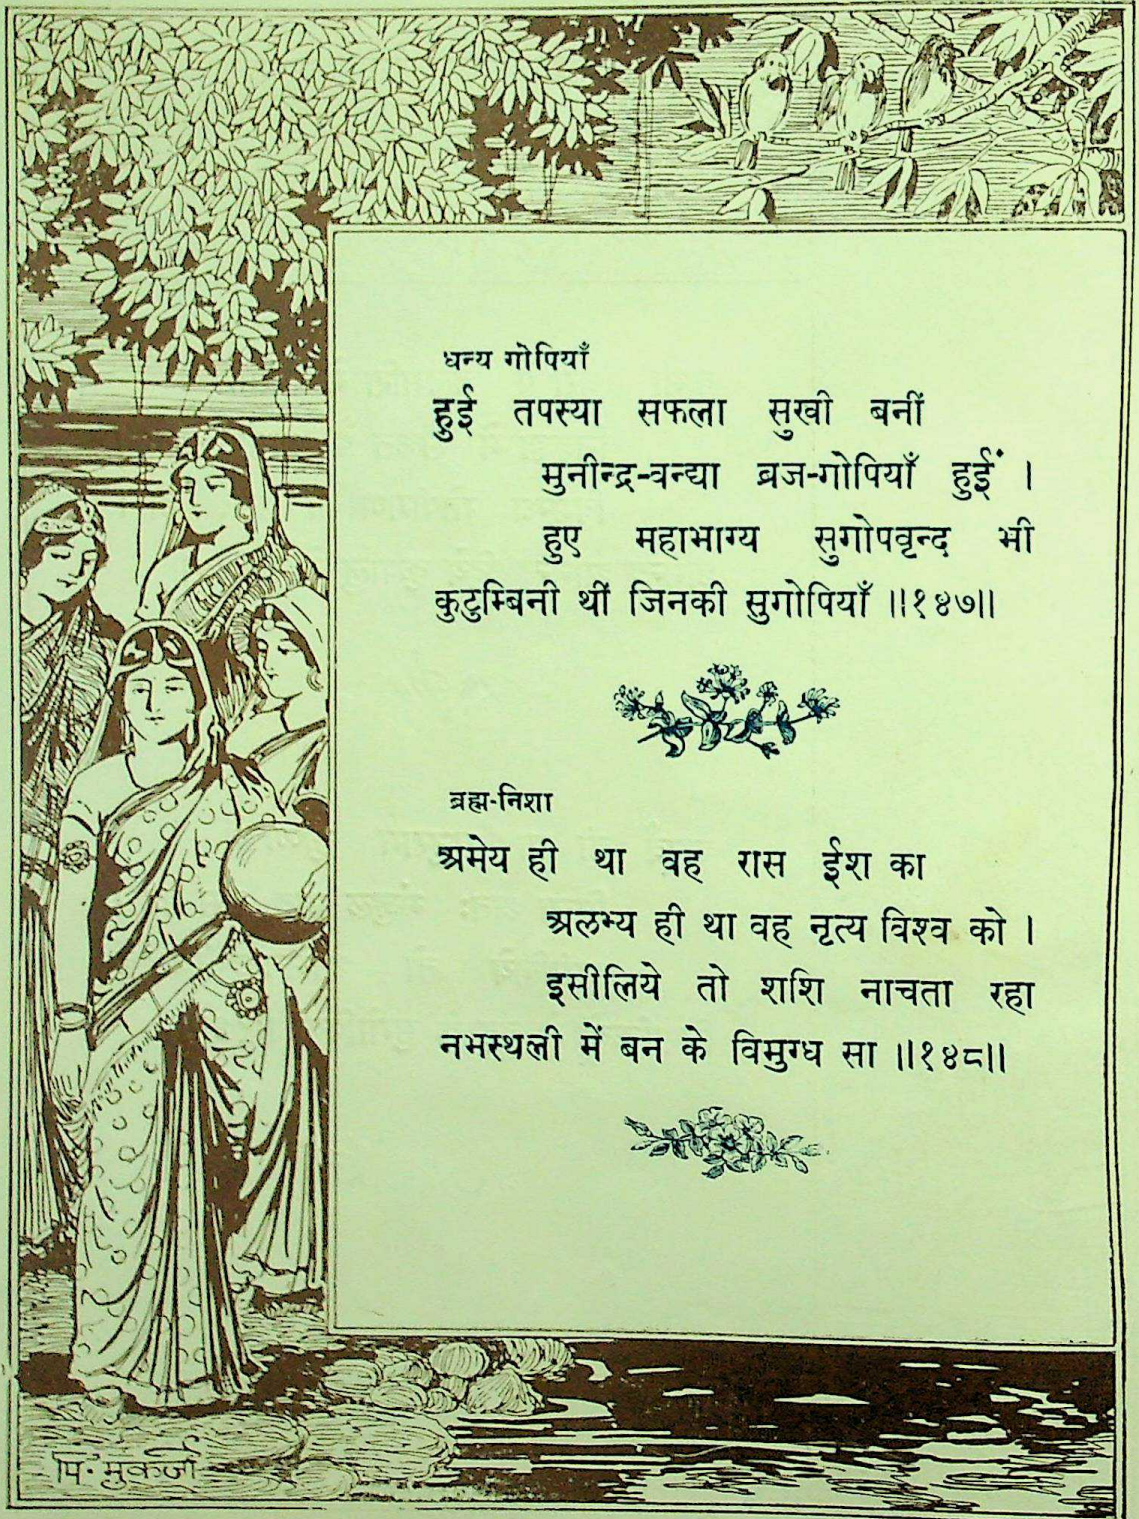 धन्य गोपियाँ
हुई तपस्या सफला सुखी बनीं
मुनीन्द्र-वन्द्या ब्रज-गोपियाँ हुईं ।
हुए महाभाग्य सुगोपवृन्द भी
कुटुम्बिनी थीं जिनकी सुगोपियाँ ॥१४७॥
ब्रह्म-निशा
अमेय ही था वह रास ईश का
अलभ्य ही था वह नृत्य विश्व को ।
इसीलिये तो शशि नाचता रहा
नभस्थली में बन के विमुग्ध सा ॥१४८॥
पि. मुकर्जी